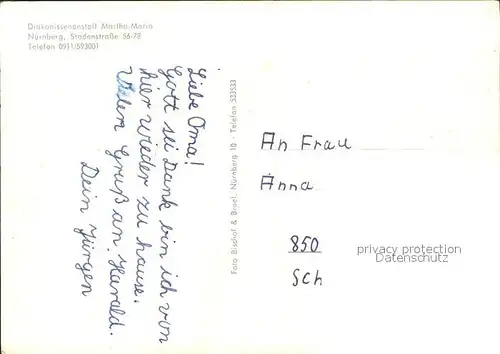 Diakonissenanstalt Martha-Maria
Nürnberg, Stadenstraße 56-78
Telefon 0911/593001
Liebe Oma!
Gott sei Dank bin ich von
hier wieder zu hause.
Vielem Gruß an Harald.
Dein Jürgen
Foto Bischof & Broel, Nürnberg 10 · Telefon 533533
An Frau
Anna
850
Sch
privacy protection
Datenschutz